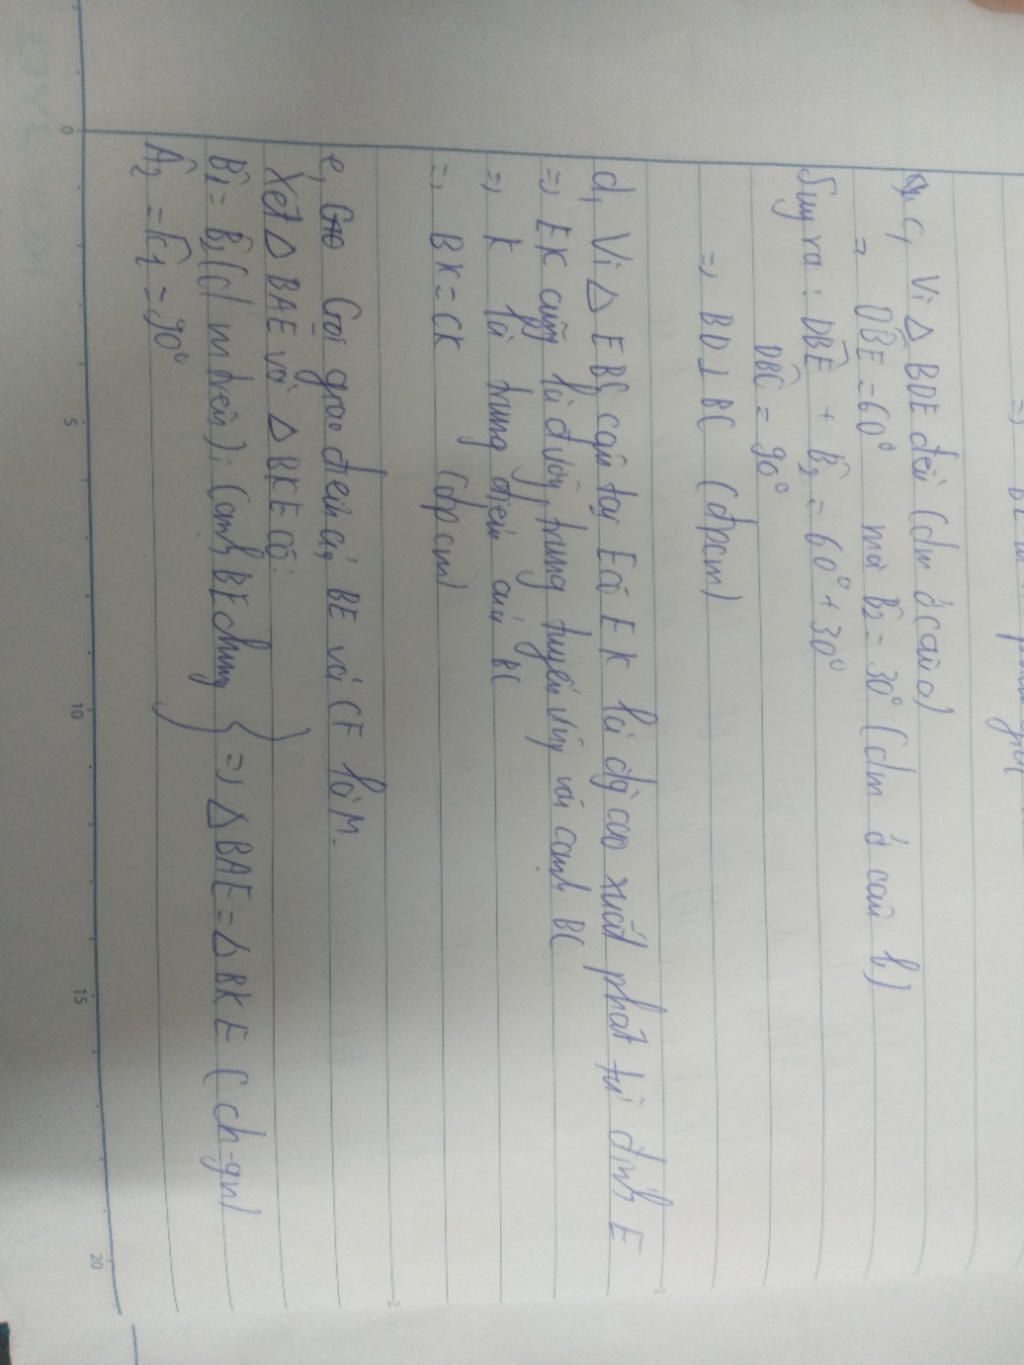 c, Vì △ BDE đều (cm ở câu a)
⇒ DBE = 60° mà B̂₂ = 30° (cm ở câu b)
Suy ra: DBE + B̂₂ = 60° + 30°
DBC = 90°
⇒ BD ⊥ BC (đpcm)
d, Vì △ EBC cân tại E có EK là đg cao xuất phát từ đỉnh E
⇒ EK cũng là đường trung tuyến ứng với cạnh BC
⇒ K là trung điểm của BC
⇒ BK = CK (đpcm)
e, Gọi giao điểm của BE và CF là M.
Xét △ BAE và △ BKE có:
(cm trên); Cạnh BE chung } ⇒ △ BAE = △ BKE (ch-gn)
= 90°
0
5
10
15
20